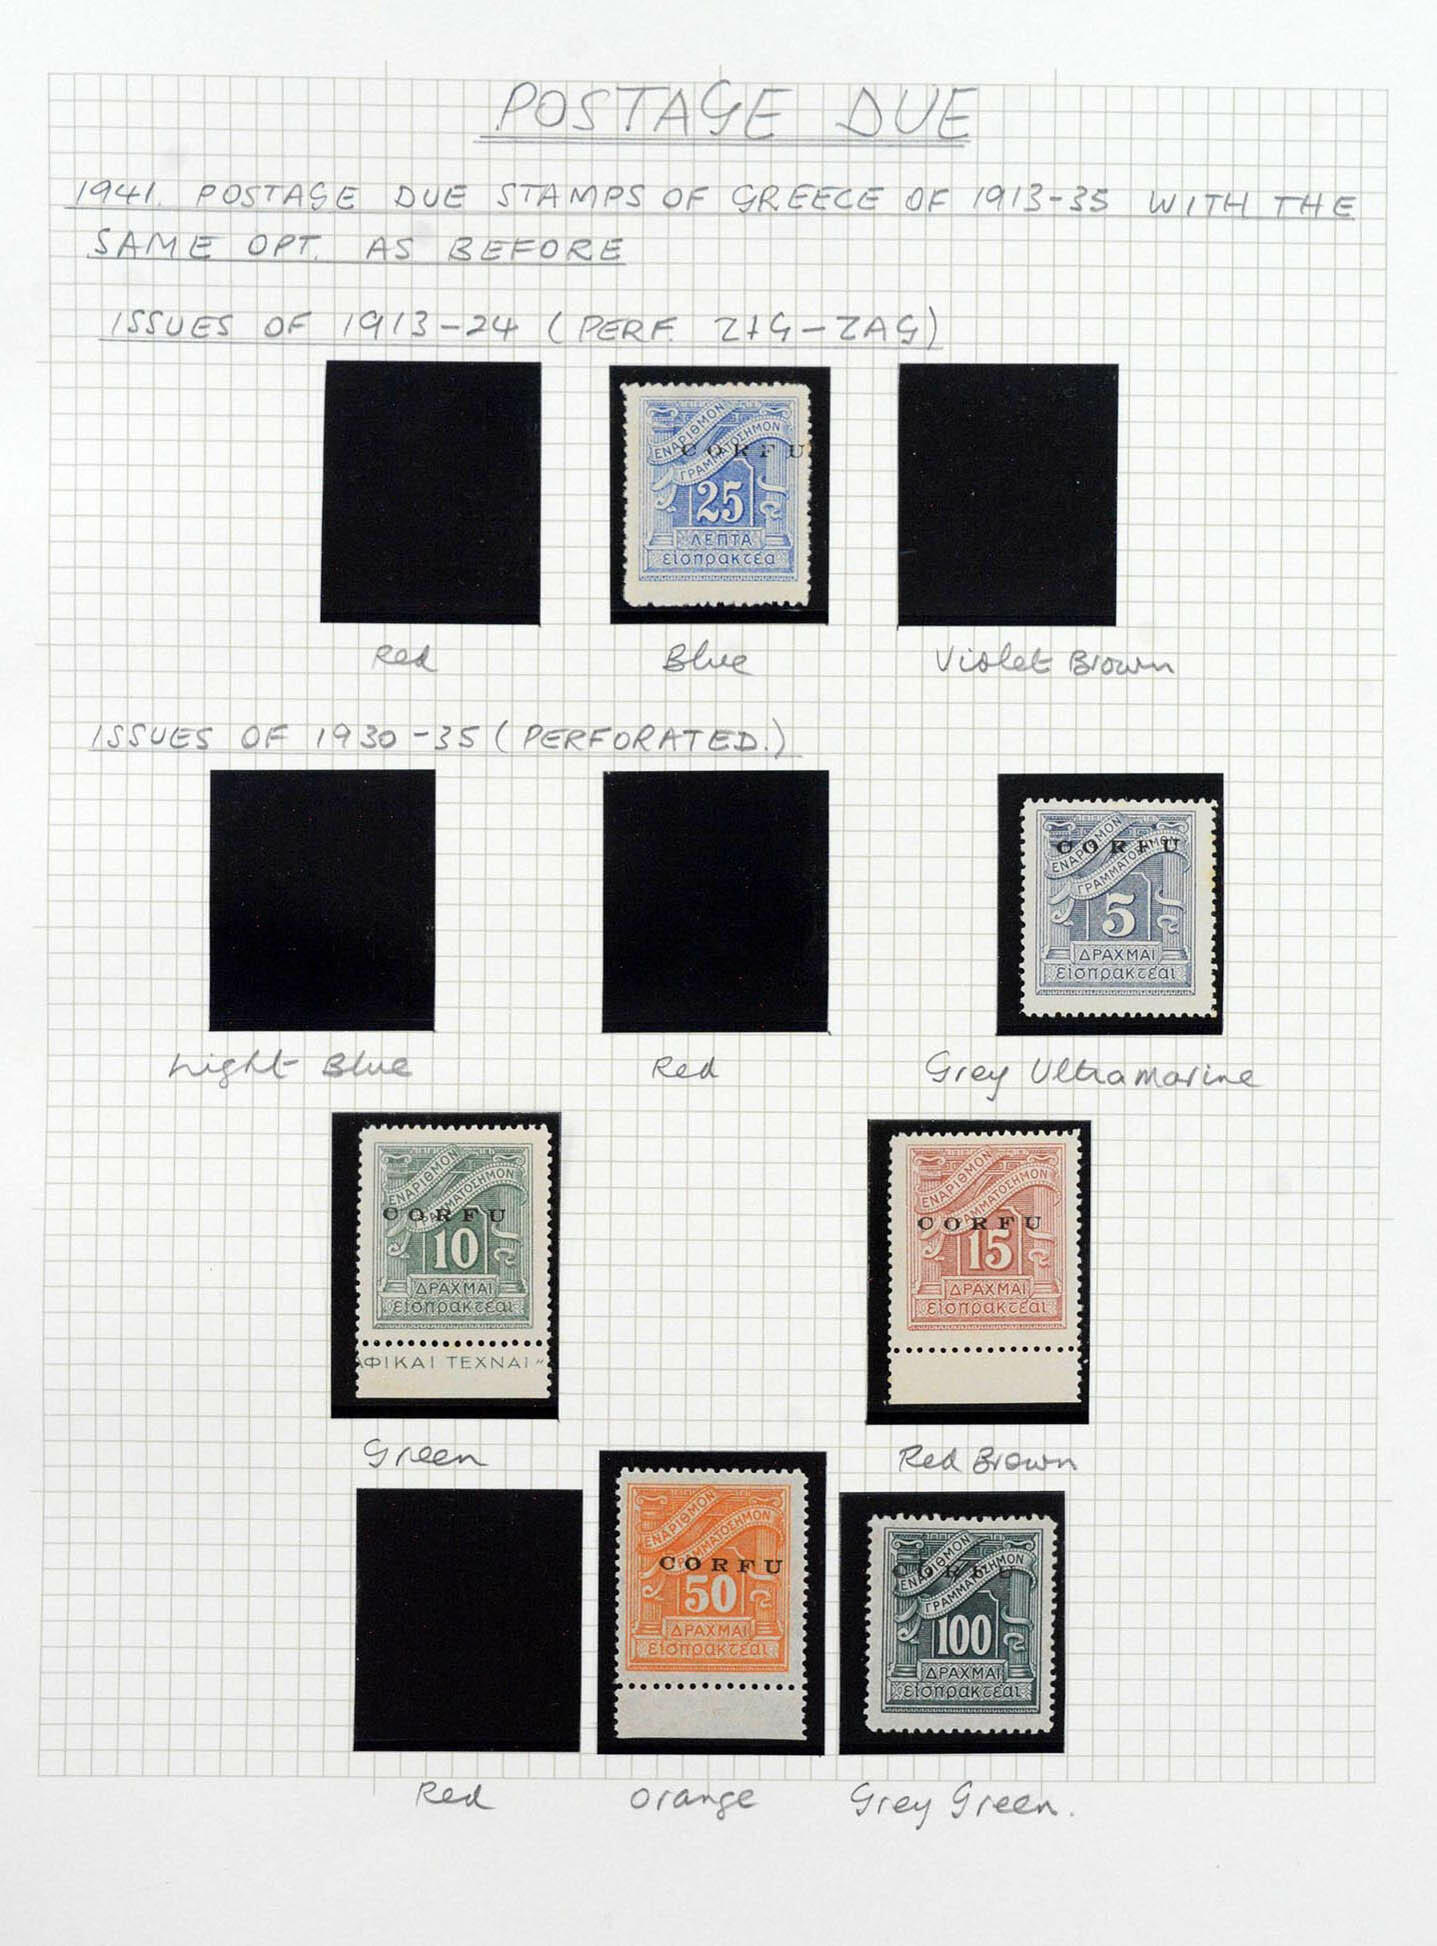 POSTAGE DUE
1941. POSTAGE DUE STAMPS OF GREECE OF 1913-35 WITH THE
SAME OPT. AS BEFORE
ISSUES OF 1913-24 (PERF. ZIG-ZAG)
ΕΝΑΡΙΘΜΟΝ
ΓΡΑΜΜΑΤΟΣΗΜΟΝ
CORFU
25
ΛΕΠΤΑ
εἰσπρακτέα
Red
Blue
Violet Brown
ISSUES OF 1930-35 (PERFORATED.)
ΕΝΑΡΙΘΜΟΝ
CORFU
ΓΡΑΜΜΑΤΟΣΗΜΟΝ
5
ΔΡΑΧΜΑΙ
εἰσπρακτέαι
Light Blue
Red
Grey Ultramarine
ΕΝΑΡΙΘΜΟΝ
ΓΡΑΜΜΑΤΟΣΗΜΟΝ
CORFU
10
ΔΡΑΧΜΑΙ
εἰσπρακτέαι
ΑΦΙΚΑΙ ΤΕΧΝΑΙ"
ΕΝΑΡΙΘΜΟΝ
ΓΡΑΜΜΑΤΟΣΗΜΟΝ
CORFU
15
ΔΡΑΧΜΑΙ
εἰσπρακτέαι
Green
Red Brown
ΕΝΑΡΙΘΜΟΝ
ΓΡΑΜΜΑΤΟΣΗΜΟΝ
CORFU
50
ΔΡΑΧΜΑΙ
εἰσπρακτέαι
ΕΝΑΡΙΘΜΟΝ
CORFU
ΓΡΑΜΜΑΤΟΣΗΜΟΝ
100
ΔΡΑΧΜΑΙ
εἰσπρακτέαι
Red
Orange
Grey Green.